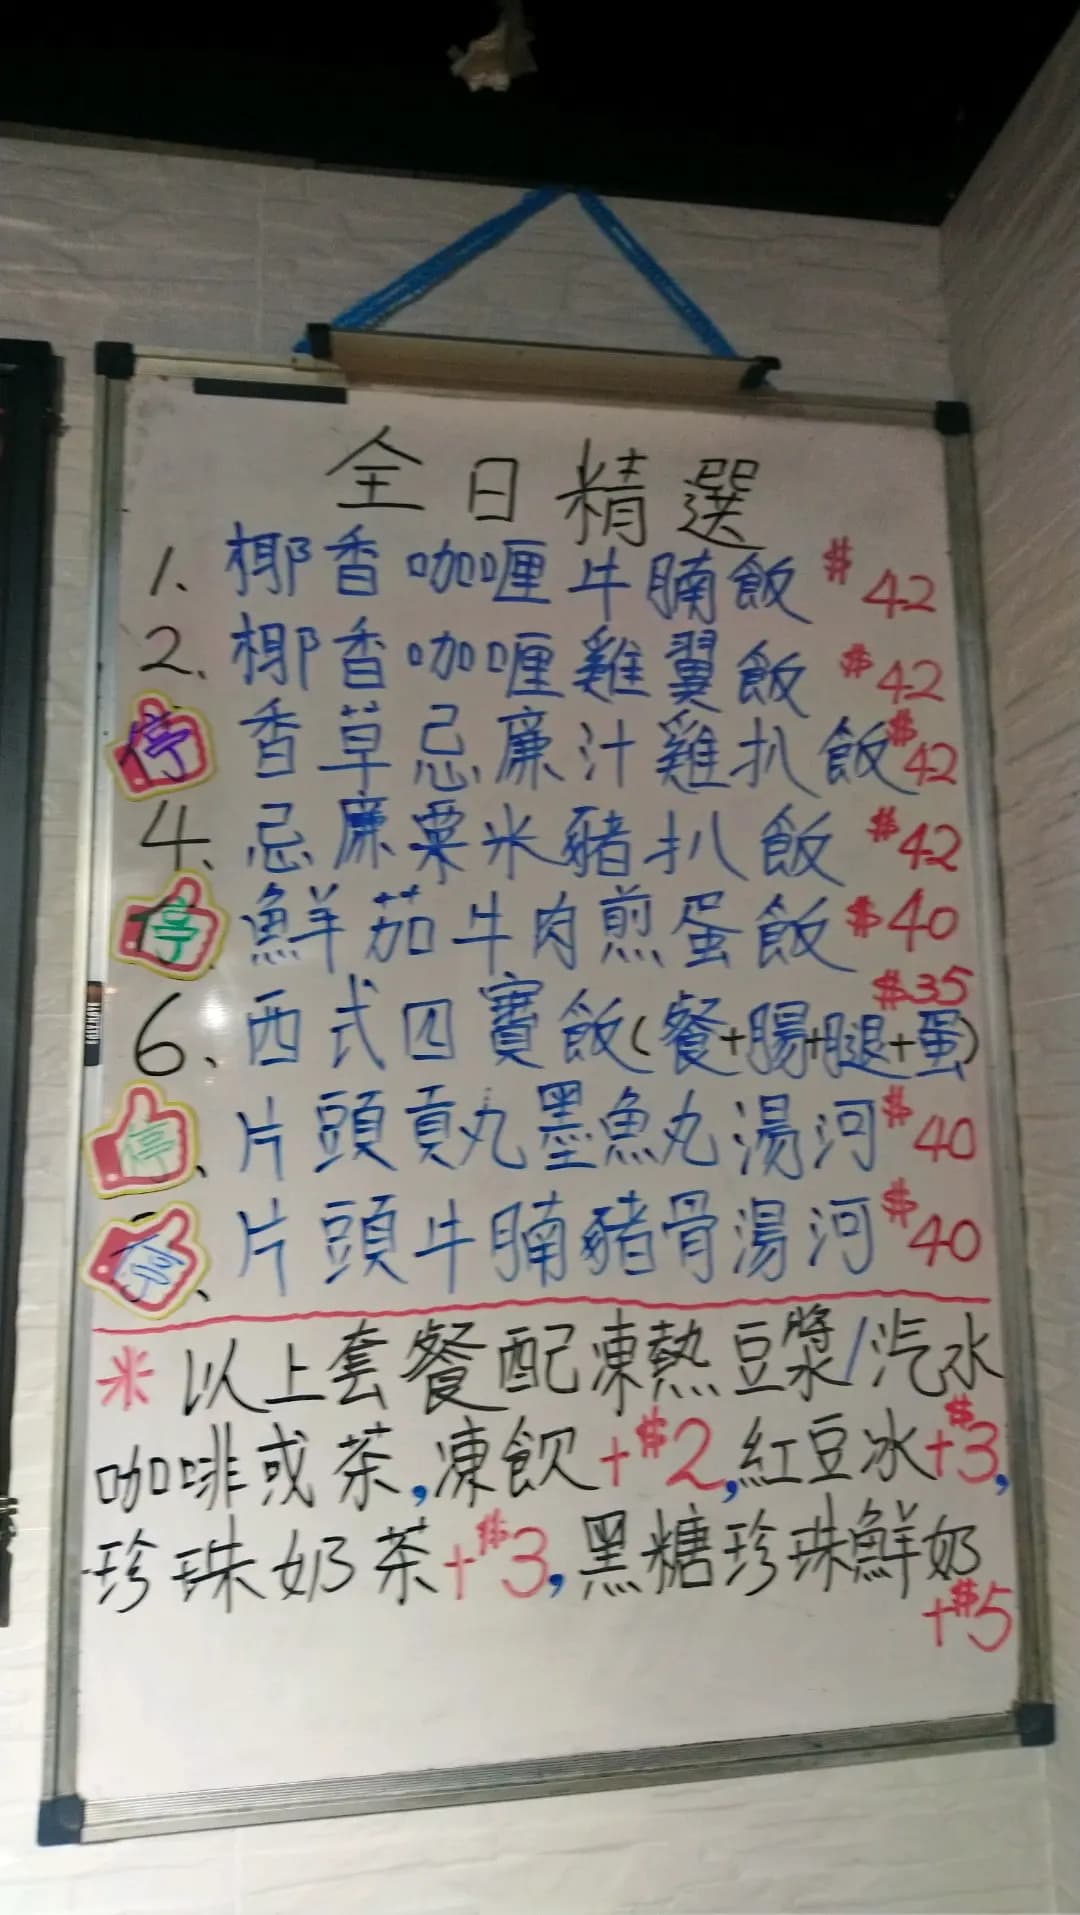 全日精選
1、椰香咖喱牛腩飯 $42
2、椰香咖喱雞翼飯 $42
停 香草忌廉汁雞扒飯 $42
4、忌廉粟米豬扒飯 $42
停 鮮茄牛肉煎蛋飯 $40
6、西式四寶飯(餐+腸+腿+蛋) $35
停、片頭貢丸墨魚丸湯河 $40
停、片頭牛腩豬骨湯河 $40
米 以上套餐配凍熱豆漿/汽水
咖啡或茶,凍飲+$2,紅豆冰+$3,
珍珠奶茶+$3,黑糖珍珠鮮奶
+$5